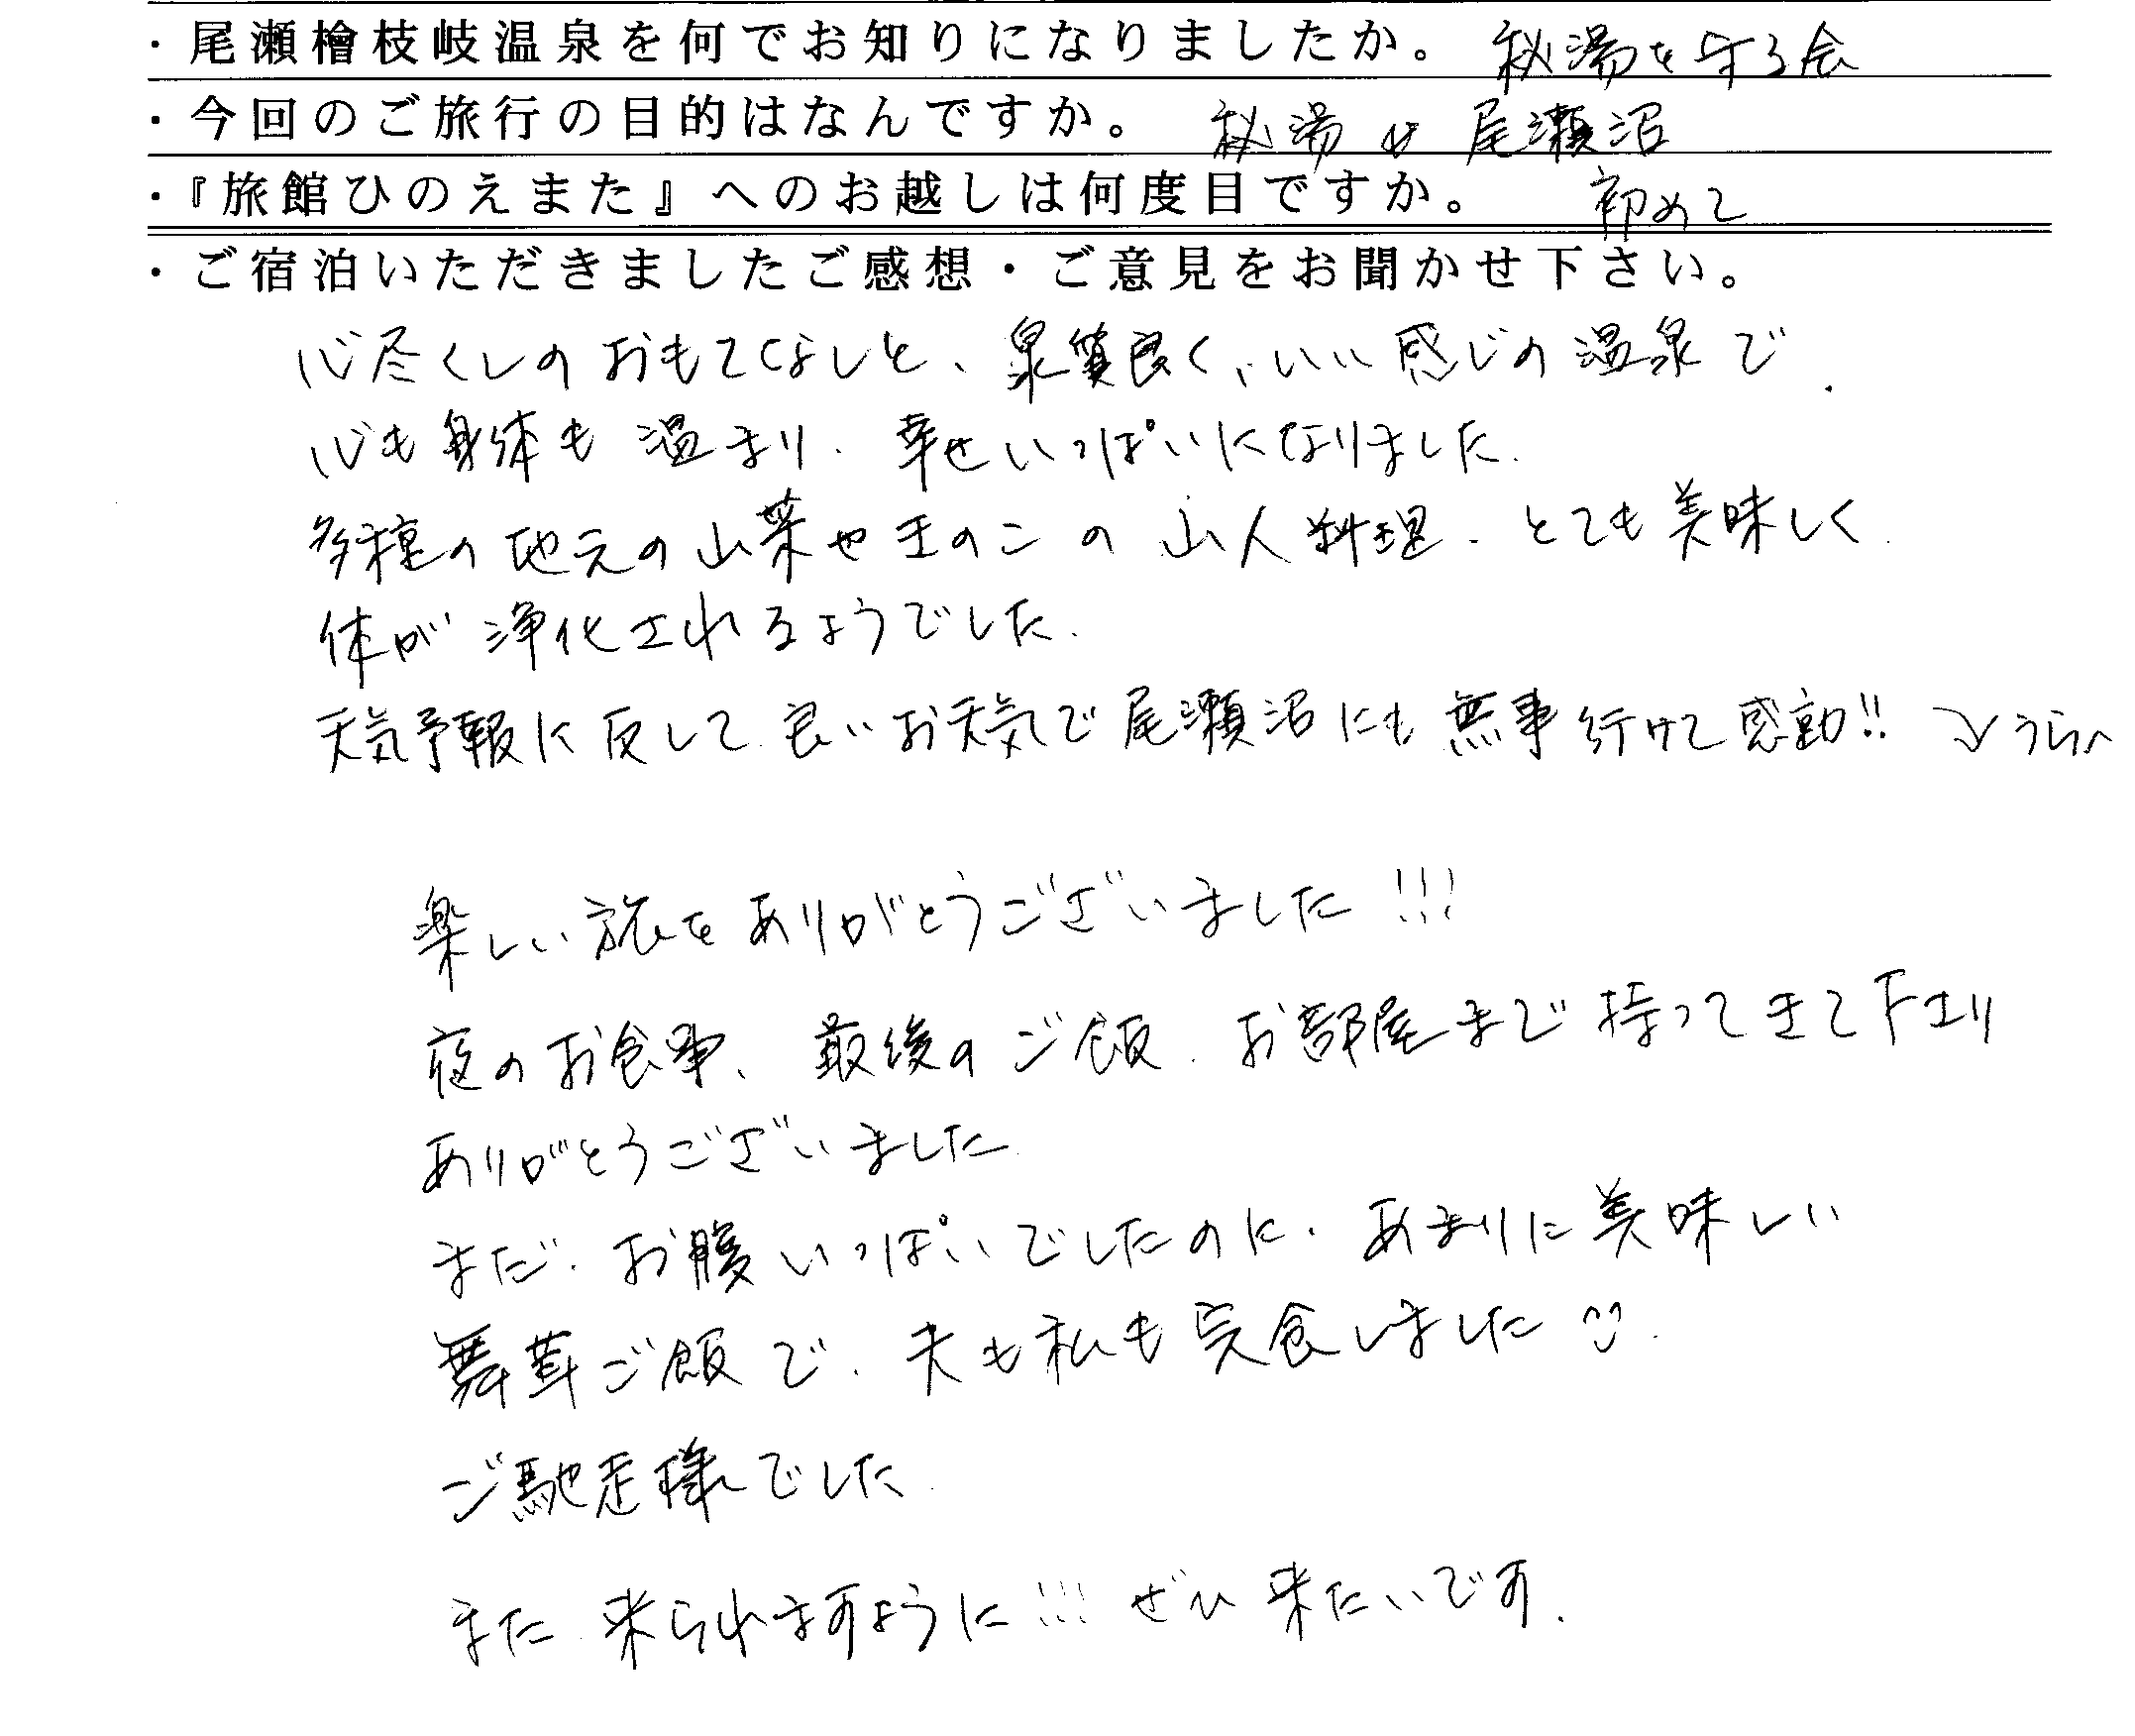 ・尾瀬檜枝岐温泉を何でお知りになりましたか。 秘湯を守る会
・今回のご旅行の目的はなんですか。 秘湯や尾瀬沼
・『旅館ひのえまた』へのお越しは何度目ですか。 初めて
・ご宿泊いただきましたご感想・ご意見をお聞かせ下さい。
心尽くしのおもてなしと、泉質良く、いい感じの温泉で、
心も身体も温まり、幸せいっぱいになりました。
多種の地元の山菜やきのこの山人料理、とても美味しく、
体が浄化されるようでした。
天気予報に反して、良いお天気で尾瀬沼にも無事行けて感動!! うらへ
楽しい旅をありがとうございました!!!
夜のお食事、最後のご飯、お部屋まで持ってきて下さり
ありがとうございました。
まだ、お腹いっぱいでしたのに、あまりに美味しい
舞茸ご飯で、夫も私も完食しました。
ご馳走様でした。
また、来られますように!!! ぜひ来たいです。